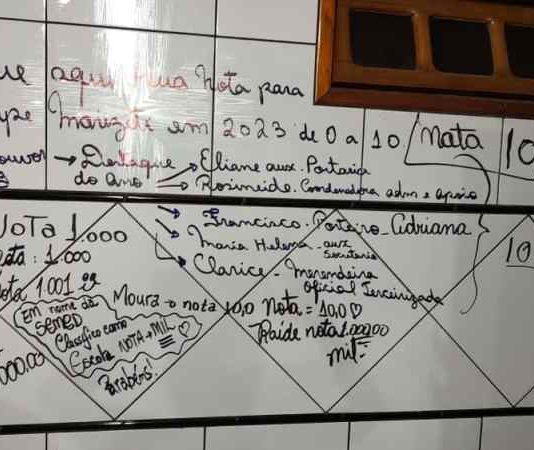 ue aqui sua Nota para
ype Marizete em 2023 de 0 a 10. Nata 10
ouvor → Destaque → Eliane aux. Portaria
do ano → Rosineide. Coordenadora adm e apoio
→ Francisco. Porteiro - Adriana
→ Maria Helena - aux Secretaria
→ Clarice - Merendeira
Oficial Terceirizada
NoTa 1.000
: 1.000
ota 1.001
10
Em nome da
SEMED
Classifico como
Escola NOTA → MIL ♡
Parabéns!
000,00
Moura → nota 10,0
Nota = 10,0 ♡
Raide nota 1.000,00
mil